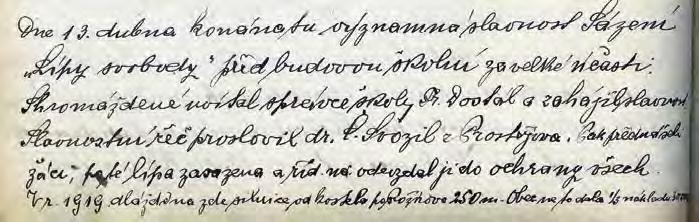 Dne 13. dubna konána tu významná slavnost Sázení
„Lípy svobody" před budovou školní za velké účasti.
Shromážděné uvítal správce školy R. Dostál a zahájil slavnost
Slavnostní řeč proslovil dr. Svozil z Prostějova. Pak přednášeli
žáci, poté lípa zasazena a říd. odevzdal ji do ochrany všech.
V r. 1919 dlážděna zde silnice od kostela 250 m. Obec na to dala ⅓ nákladu